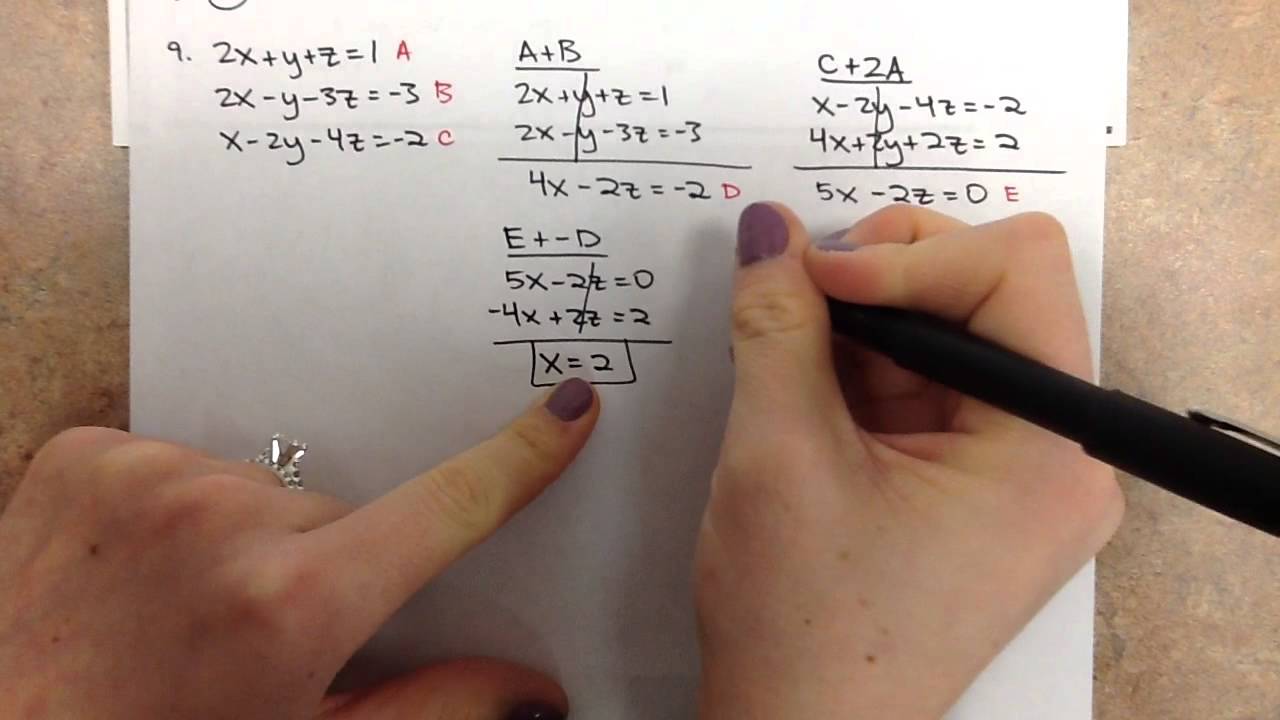 9. 2x+y+z=1 A
2x-y-3z=-3 B
x-2y-4z=-2 C
A+B
2x+y+z=1
2x-y-3z=-3
4x-2z=-2 D
C+2A
x-2y-4z=-2
4x+2y+2z=2
5x-2z=0 E
E+-D
5x-2z=0
-4x+2z=2
x=2